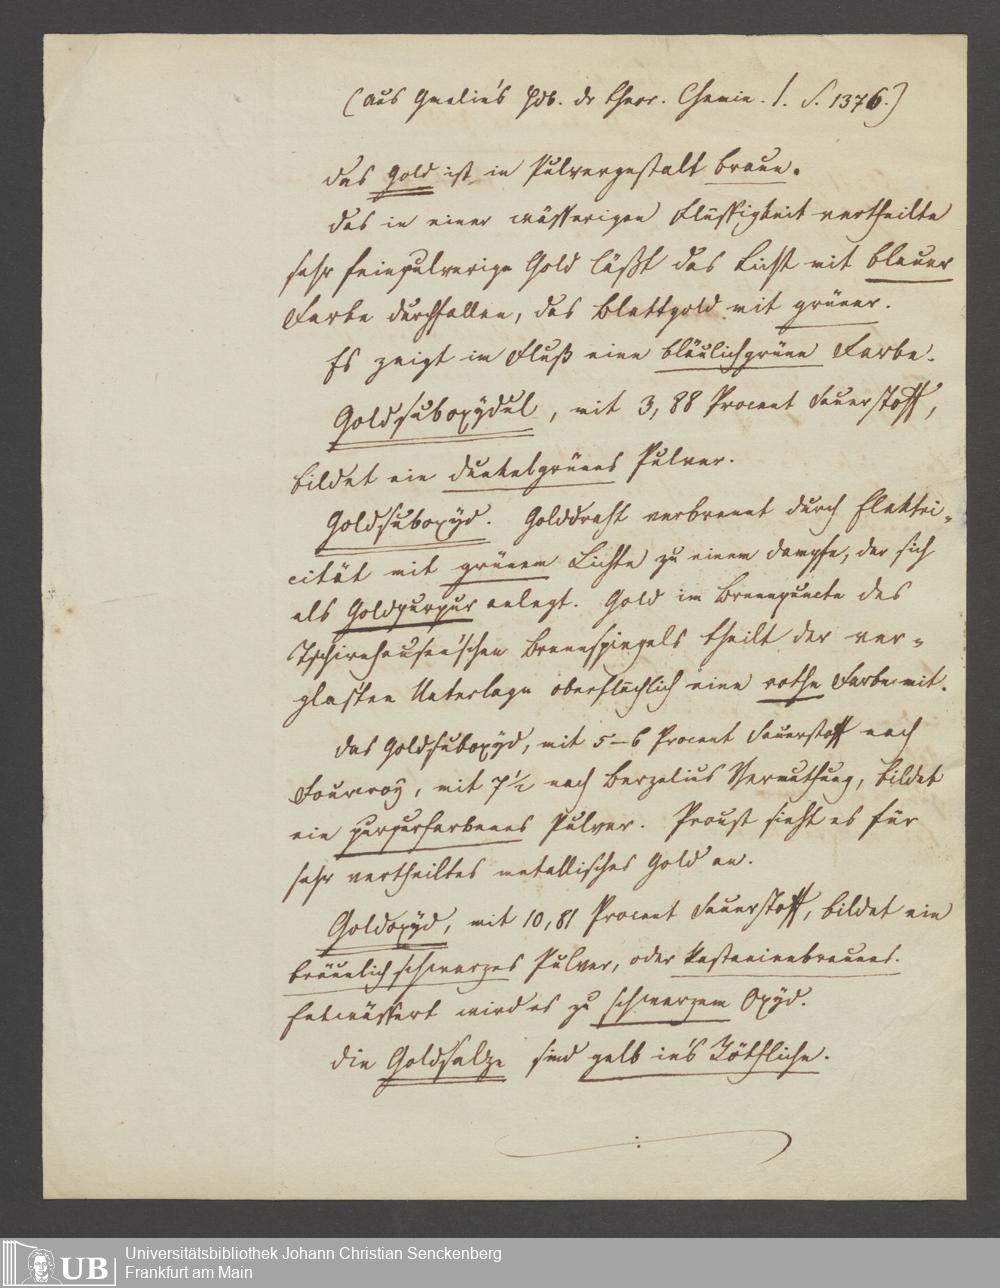 (aus Gmelin's Hdb. dr theor. Chemie. I. S. 1376.)
Das Gold ist in Pulvergestalt braun.
Das in einer wässerigen Flüssigkeit vertheilte
sehr feinpulverige Gold läßt das Licht mit blauer
Farbe durchfallen, das Blattgold mit grüner.
Es zeigt im Fluß eine bläulichgrüne Farbe.
Goldsuboxÿdul, mit 3,88 Procent Sauerstoff,
bildet ein dunkelgrünes Pulver.
Goldsuboxÿd. Golddraht verbrennt durch Elektri-
cität mit grünem Lichte zu einem Dampfe, der sich
als Goldpurpur anlegt. Gold im Brennpuncte des
Tschirnhausen'schen Brennspiegels theilt der ver-
glasten Unterlage oberflächlich eine rothe Farbe mit.
Das Goldsuboxÿd, mit 5–6 Procent Sauerstoff nach
Fourcroÿ, mit 7½ nach Berzelius Vermuthung, bildet
ein purpurfarbenes Pulver. Proust sieht es für
sehr vertheiltes metallisches Gold an.
Goldoxÿd, mit 10,81 Procent Sauerstoff, bildet ein
bräunlich schwarzes Pulver, oder kastanienbraunes.
Entwässert wird es zu schwarzem Oxÿd.
Die Goldsalze sind gelb in's Röthliche.
UB
Universitätsbibliothek Johann Christian Senckenberg
Frankfurt am Main